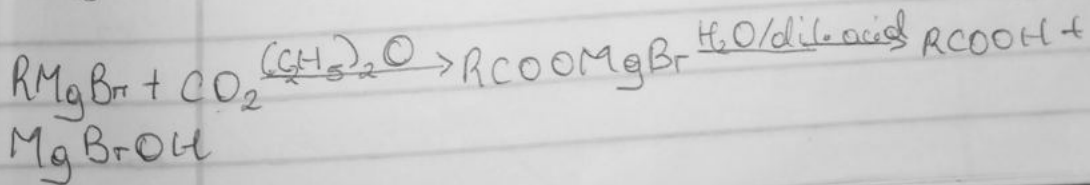 RMgBr + CO₂ (C₂H₅)₂O → RCOOMgBr H₂O/dil. acid RCOOH +
MgBrOH